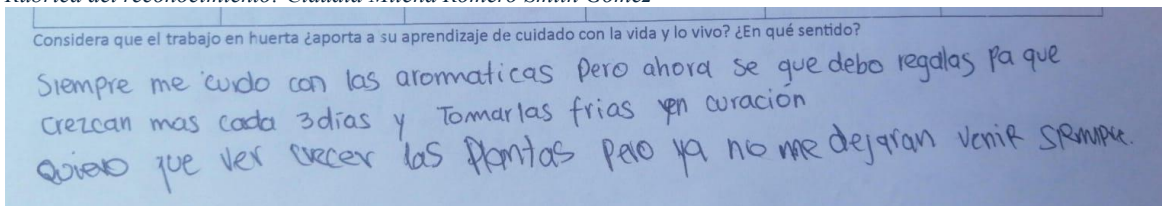 Rúbrica del reconocimiento? Claudia Milena Romero Smith Gómez
Considera que el trabajo en huerta ¿aporta a su aprendizaje de cuidado con la vida y lo vivo? ¿En qué sentido?
Siempre me cuido con las aromaticas Pero ahora se que debo regalas pa que
crezcan mas cada 3 dias y Tomarlas frias en curación
Quiero que ver crecer las Plantas Pero ya no me dejaran venir siempre.